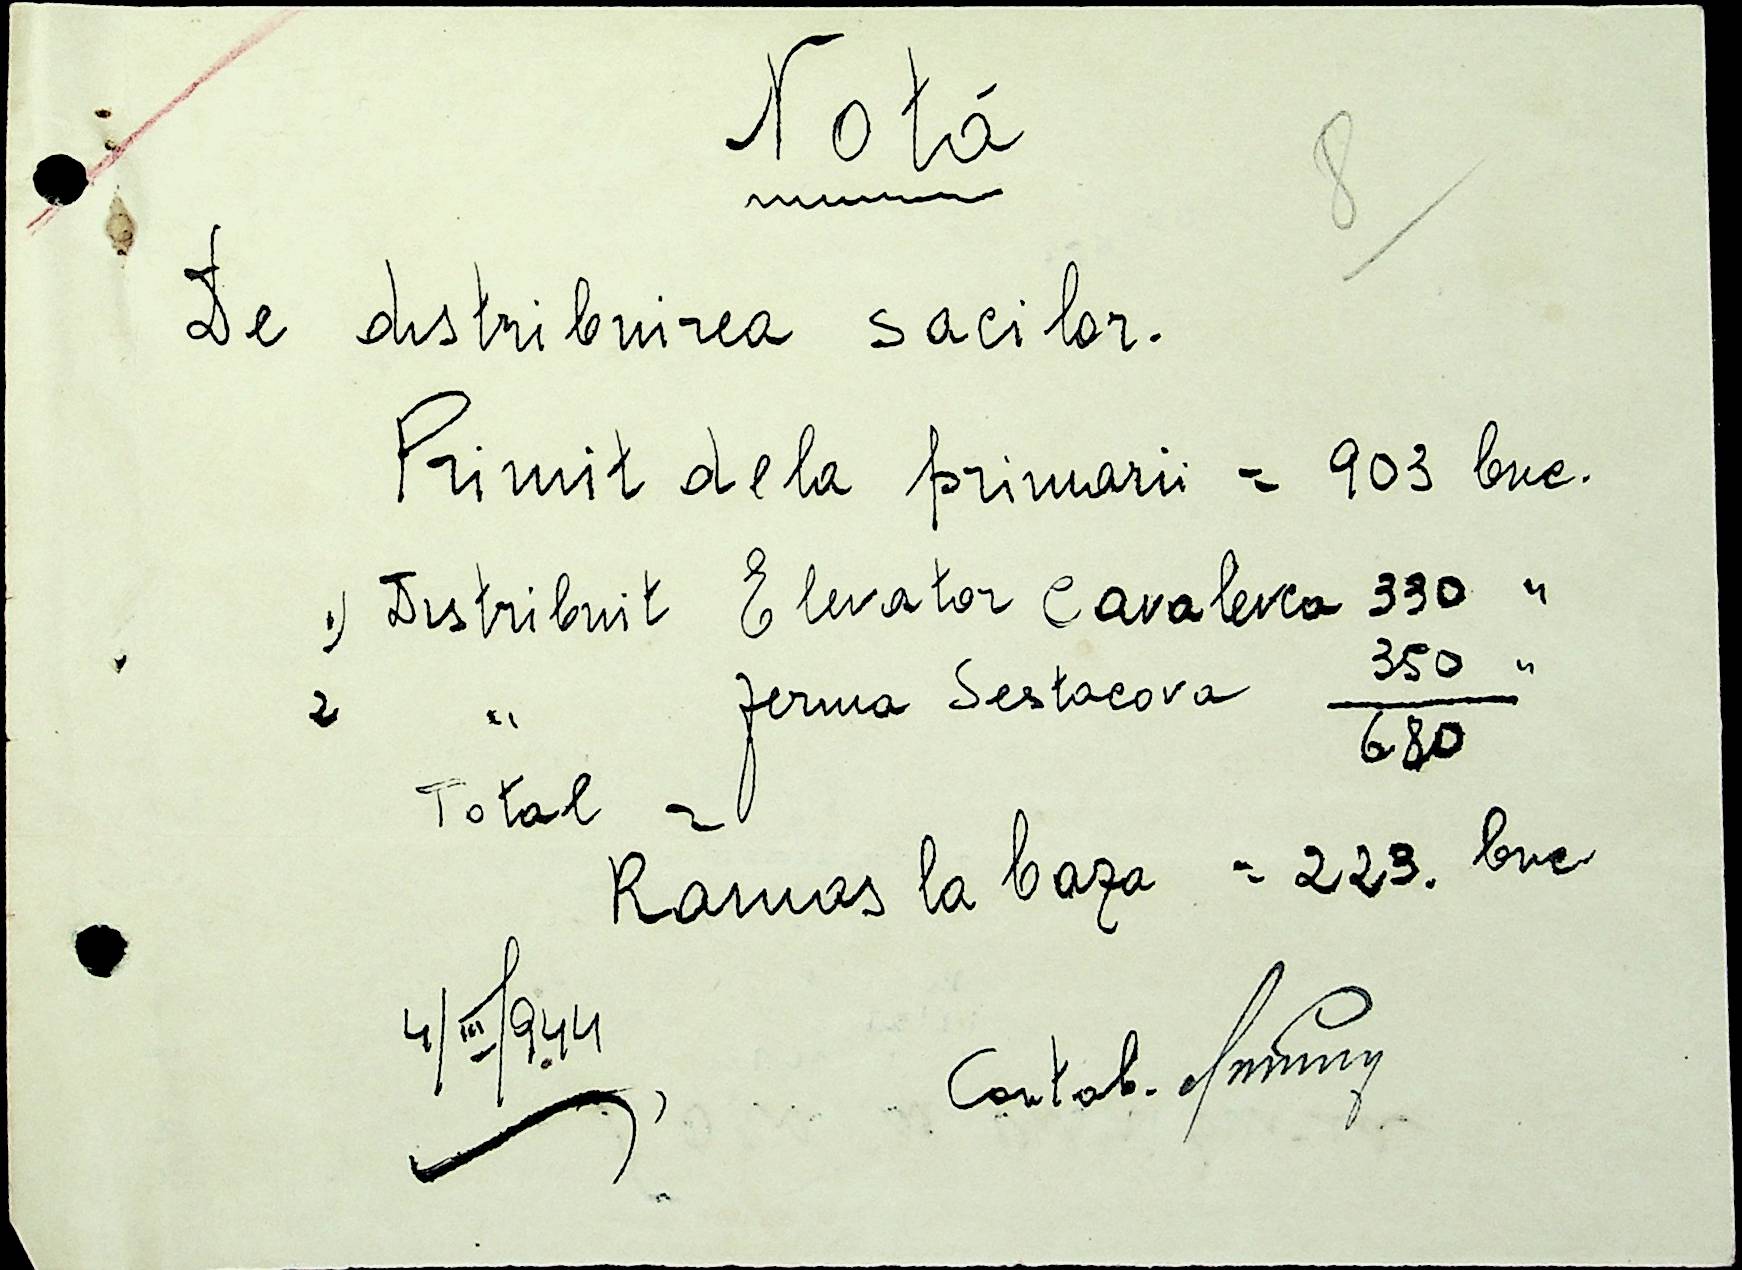 Notă
8
De distribuirea sacilor.
Primit dela primarii = 903 buc.
1) Distribuit Elevator Cavalevca 330 "
2 " ferma Sestacova 350 "
680
Total =
Ramas la baza = 223. buc
4/III/944
Contab.